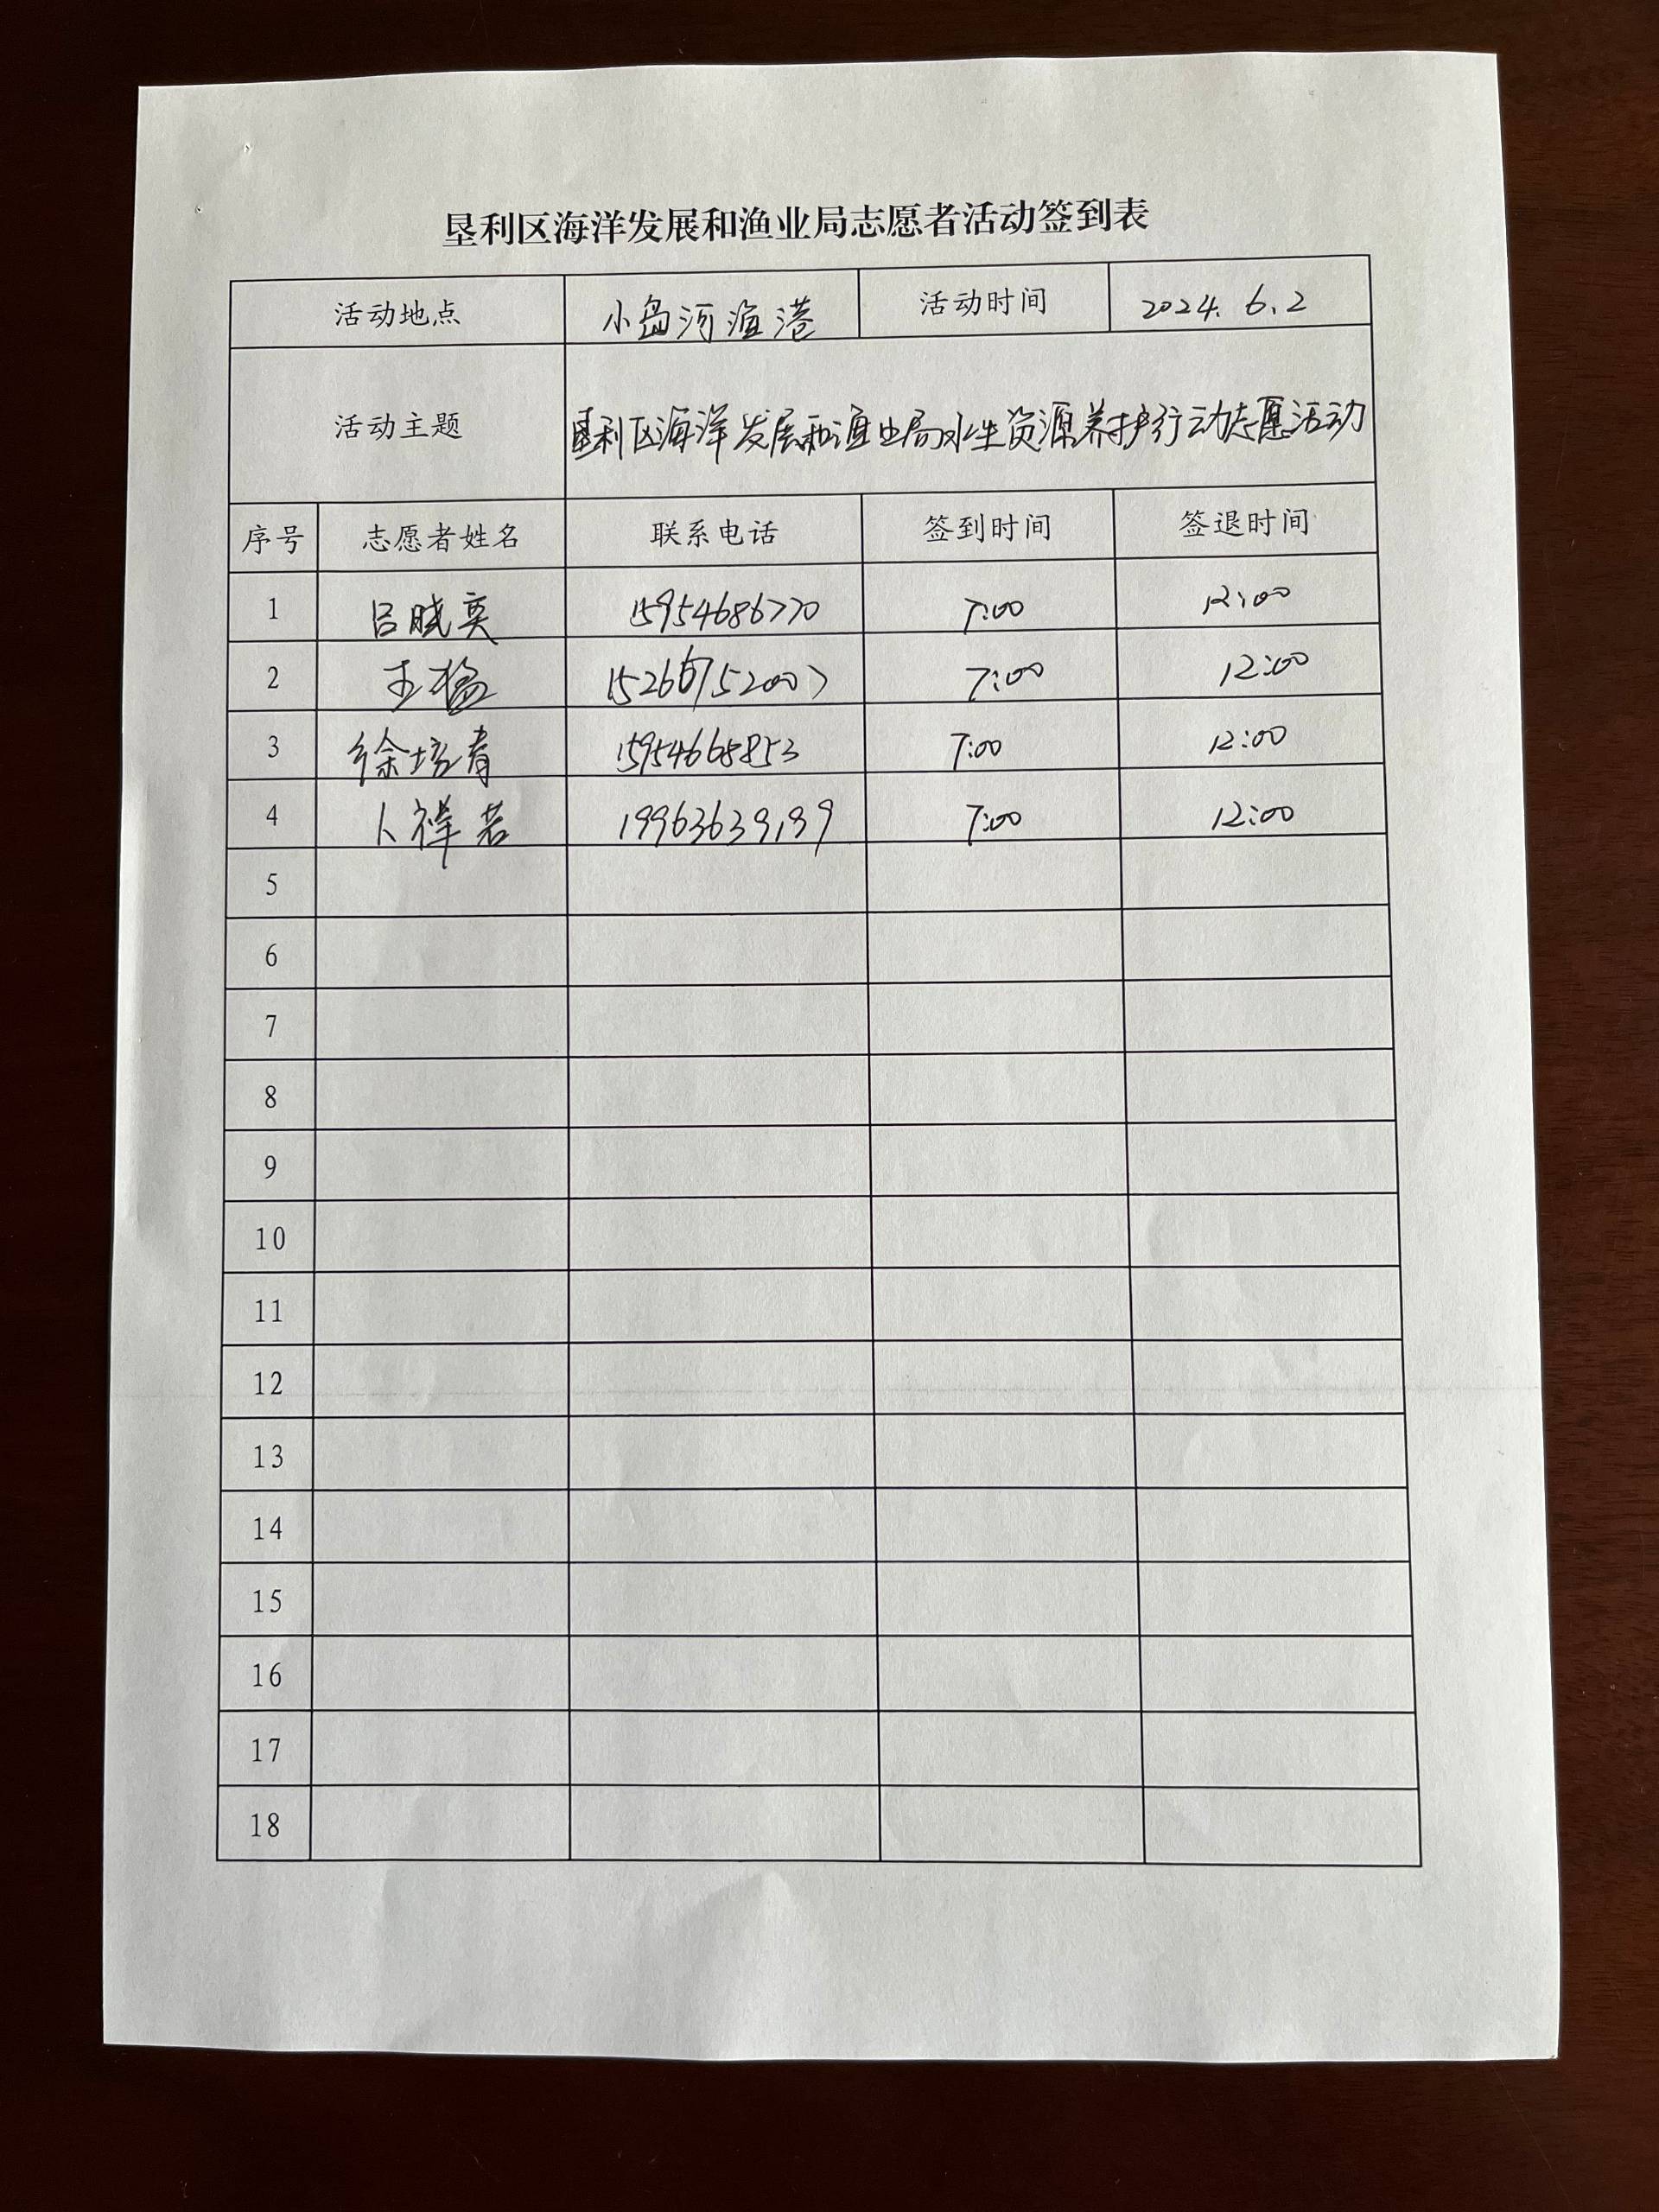 垦利区海洋发展和渔业局志愿者活动签到表
活动地点 小岛河渔港 活动时间 2024.6.2
活动主题 垦利区海洋发展和渔业局水生资源养护行动志愿活动
序号 志愿者姓名 联系电话 签到时间 签退时间
1 吕晓奕 15954686770 7:00 12:00
2 王猛 7:00 12:00
3 徐培育 15954668853 7:00 12:00
4 卜祥若 19963639139 7:00 12:00
5
6
7
8
9
10
11
12
13
14
15
16
17
18